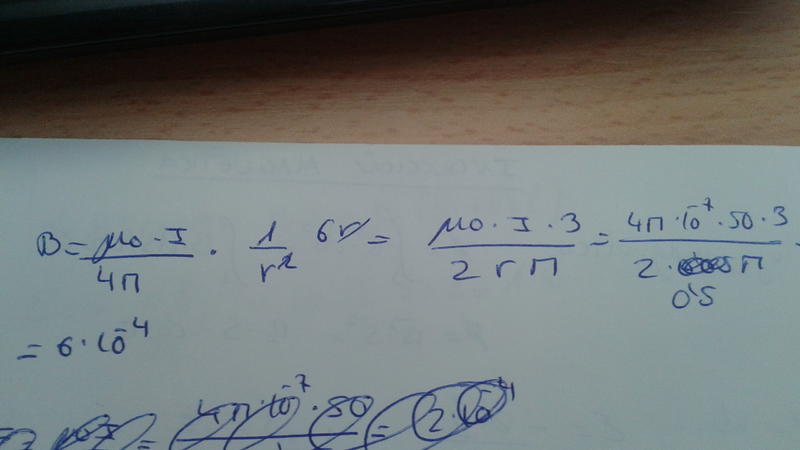 B = μ₀·I/4π · 1/r² 6r = μ₀·I·3/2rπ = 4π·10⁻⁷·50·3/2·0'5π
= 6·10⁻⁴
4π·10⁻⁷·50 = 2·10⁻⁴